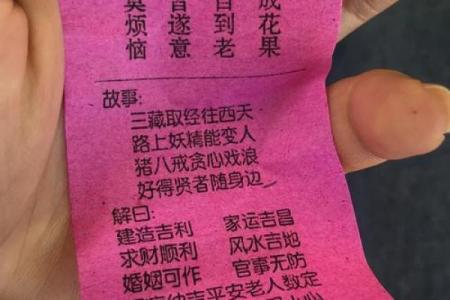 成花果
到老
遂意
烦恼
故事:
三藏取经往西天
路上妖精能变人
猪八戒贪心戏浪
好得贤者随身边
解曰:
建造吉利 家运吉昌
求财顺利 风水吉地
婚姻可作 官事无防
纳吉平安老人数定